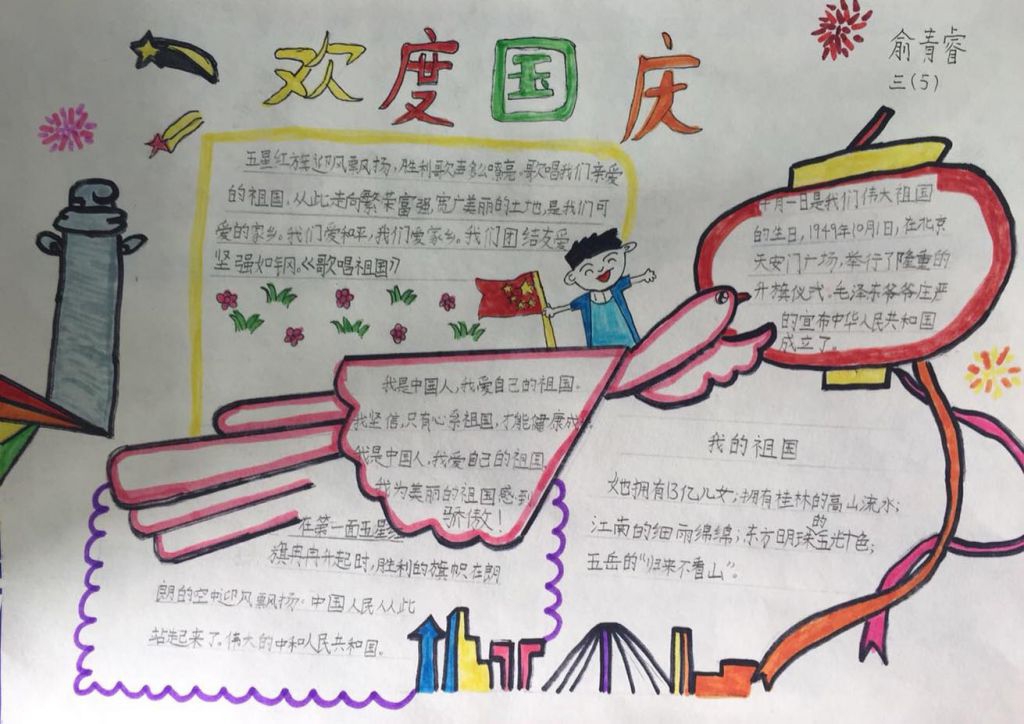 欢度国庆
俞青睿
三(5)
五星红旗迎风飘扬,胜利歌声多么嘹亮,歌唱我们亲爱
的祖国,从此走向繁荣富强,宽广美丽的土地,是我们可
爱的家乡。我们爱和平,我们爱家乡。我们团结友爱
坚强如钢。《歌唱祖国》
月一日是我们伟大祖国
的生日,1949年10月1日,在北京
天安门广场,举行了隆重的
升旗仪式。毛泽东爷爷庄严
的宣布中华人民共和国
成立了。
我是中国人,我爱自己的祖国。
我坚信,只有心系祖国,才能健康成
我是中国人,我爱自己的祖国
我为美丽的祖国感到
骄傲!
我的祖国
她拥有13亿儿女;拥有桂林的高山流水;
江南的细雨绵绵;东方明珠的五光十色;
五岳的“归来不看山”。
在第一面五星红
旗冉冉升起时,胜利的旗帜在朗
朗的空中迎风飘扬。中国人民从此
站起来了。伟大的中和人民共和国。